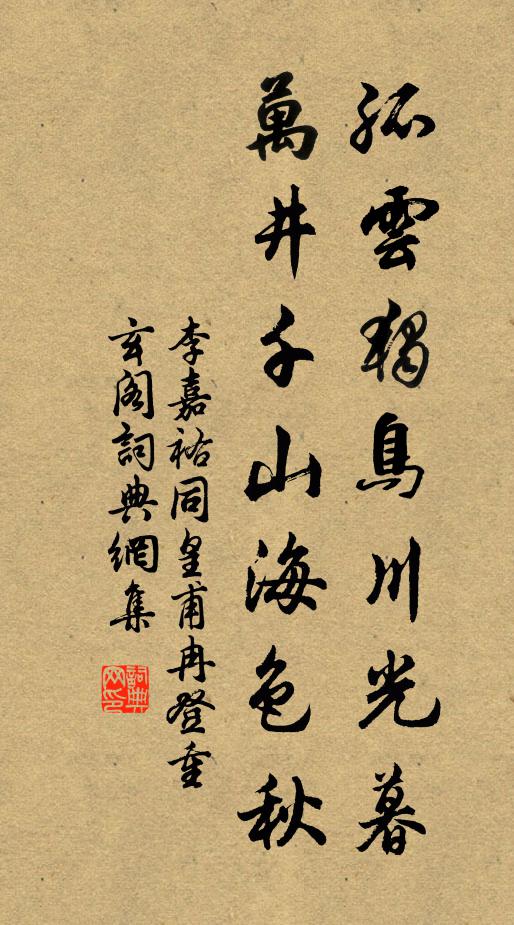 孤雲獨鳥川光暮
萬井千山海色秋
李嘉祐同皇甫冉登重
玄閣詞典網集
詞典
网印